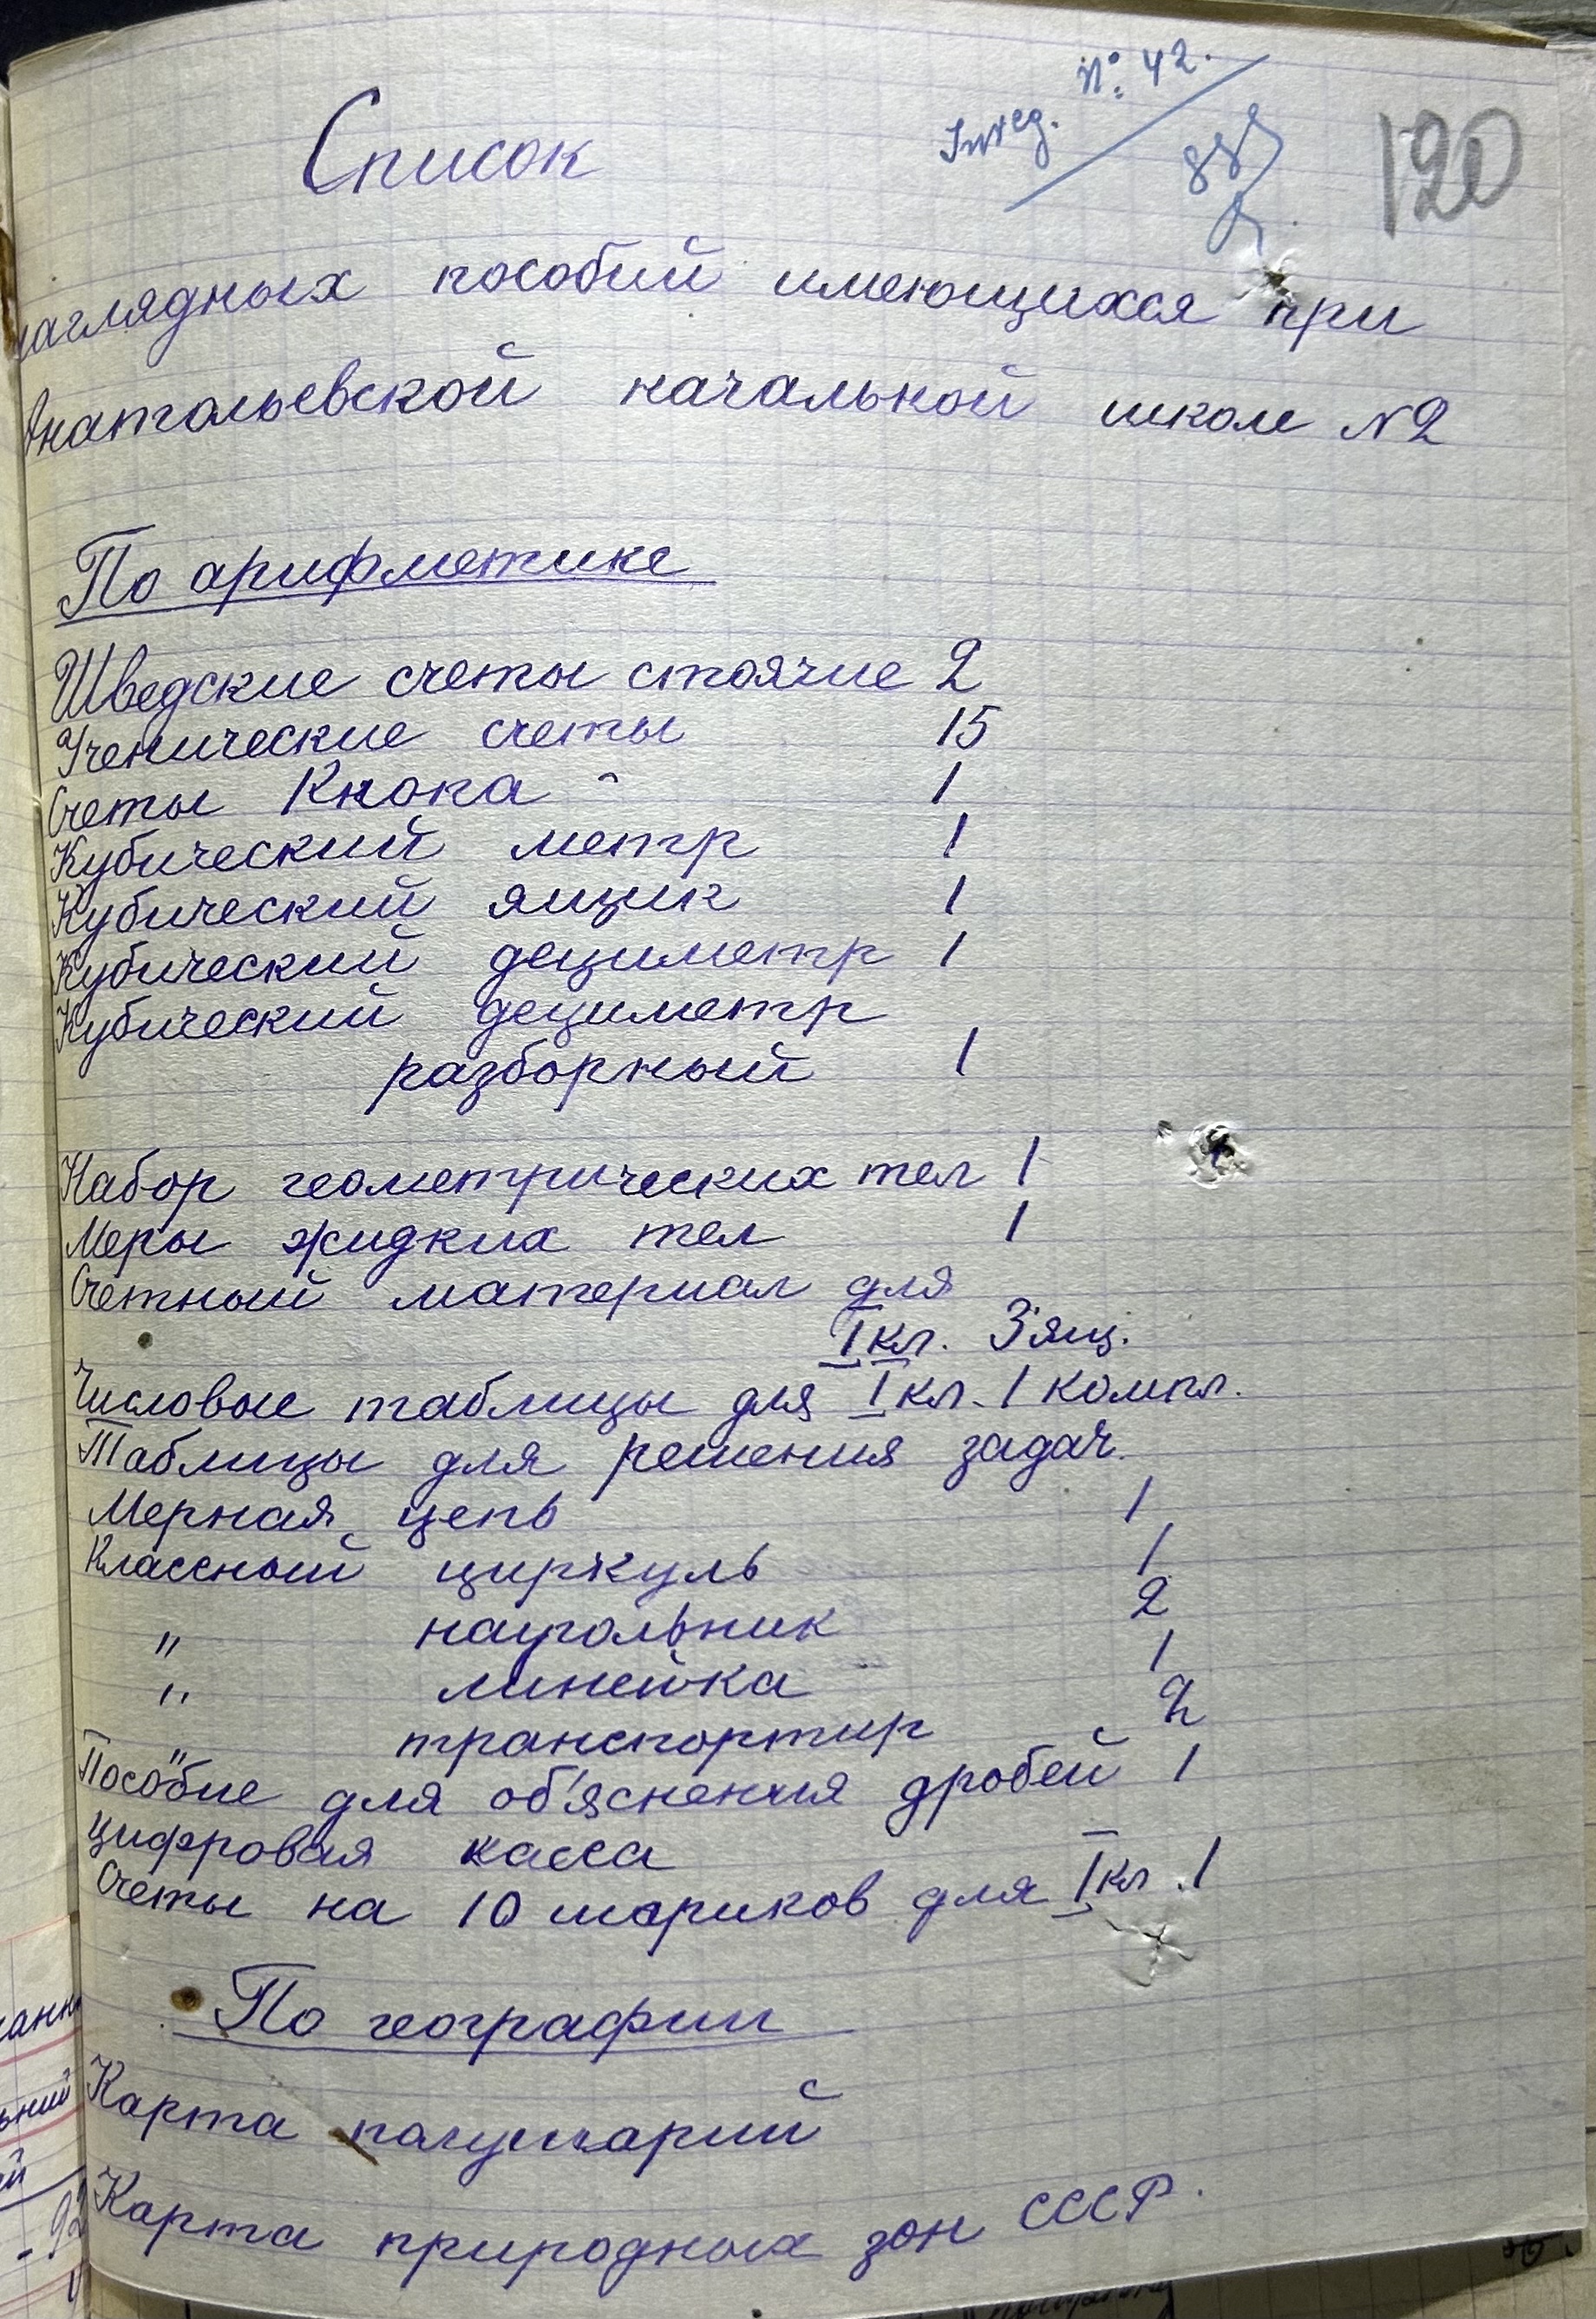 Inreg. No. 42.
120
Список
наглядных пособий имеющихся при
Анатольевской начальной школе №2
По арифметике
Шведские счеты стоячие 2
Ученические счеты 15
Счеты Кнока 1
Кубический метр 1
Кубический ящик 1
Кубический дециметр 1
Кубический дециметр
разборный 1
Набор геометрических тел 1
Меры жидких тел 1
Счетный материал для
I кл. 3 ящ.
Числовые таблицы для I кл. 1 компл.
Таблицы для решения задач.
Мерная цепь 1
Классный циркуль 1
" наугольник 2
" линейка 1
" транспортир 2
Пособие для об'яснения дробей 1
Цифровая касса
Счеты на 10 шариков для I кл. 1
По географии
Карта полушарий
Карта природных зон СССР.